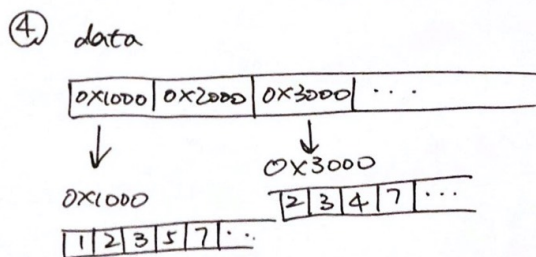 ④ data
0x1000 0x2000 0x3000 ...
0x1000
0x3000
1 2 3 5 7 ...
2 3 4 7 ...